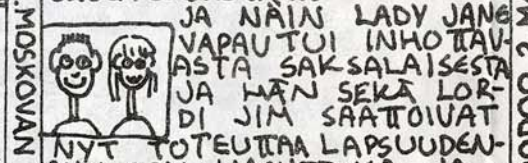 JA NÄIN LADY JANE
VAPAUTUI INHOTTAV-
ASTA SAKSALAISESTA
JA HÄN SEKÄ LOR-
DI JIM SAATTOIVAT
NYT TOTEUTTAA LAPSUUDEN-
.MOSKOVAN